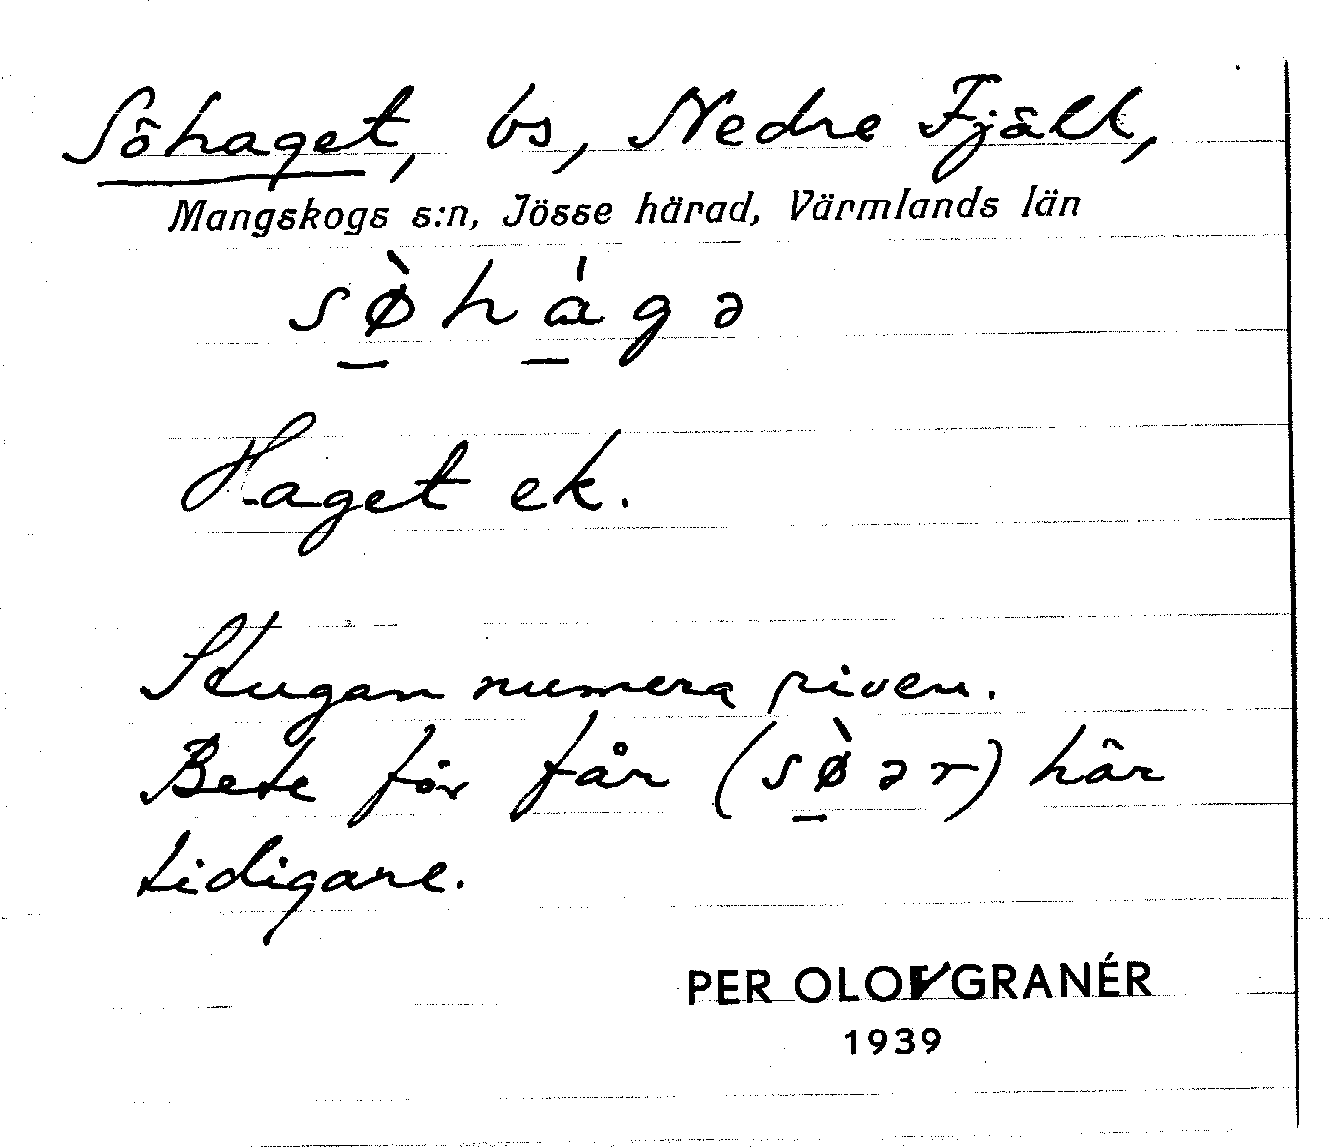 Söhaget, bs, Nedre Fjäll,
Mangskogs s:n, Jösse härad, Värmlands län
sø̠̀ha̠̍gə
Haget ek.
Stugan numera riven.
Bete för får (sø̠̀ər) här
tidigare.
PER OLOV GRANÉR
1939